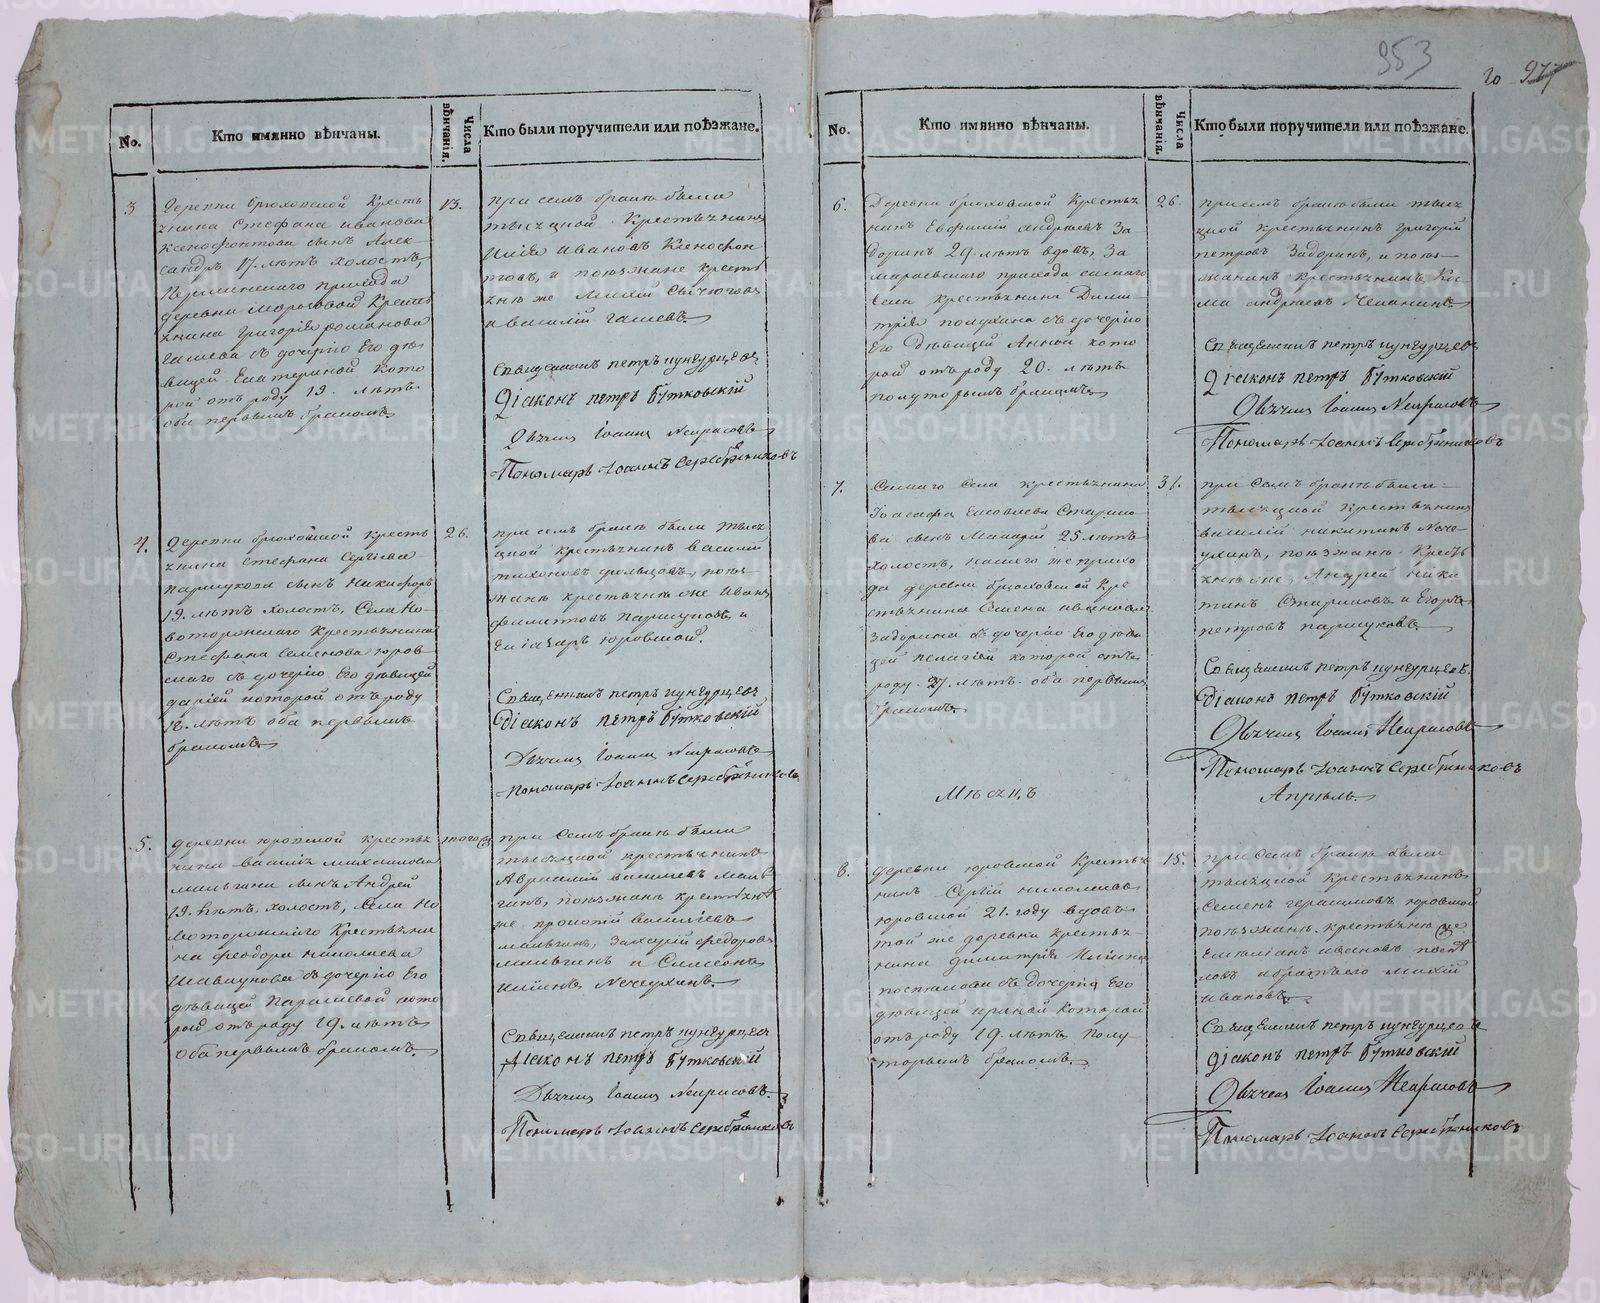 953
20 977
No.
Кто имянно вѣнчаны.
Числа вѣнчанія.
Кто были поручители или поѣзжане.
3
Деревни брюховской Кресть
янина Стефана иванова
ксенофонтова сынъ Алек-
сандръ 17. лѣтъ холостъ,
прихода
деревни морозовой Кресть
янина григорія романова
гашева съ дочерію Его дѣ-
вицей Екатериной Кото
рой отъ роду 19. лѣтъ
оба первымъ бракомъ.
13.
при семъ бракѣ были
тысяцкой Крестьянинъ
Илія Ивановъ Ксенофон
товъ, и поѣзжане кресть
яне же
и василій гашевъ.
Священникъ петръ кунгурцевъ
Діаконъ петръ Бутковскій
Дьячекъ Іоаннъ Некрасовъ
Пономарь Іоаннъ Серебрениковъ
4.
Деревни брюховской кресть
янина стефана сергѣева
паршукова сынъ Никифоръ
19. лѣтъ холостъ, Села Но-
воторжскаго крестьянина
Стефана Семенова юров-
скаго съ дочерію Его дѣвицей
дарьей которой отъ роду
18. лѣтъ оба первымъ
бракомъ
26.
при семъ бракѣ были тыся
цкой крестьянинъ василій
тихоновъ поѣз-
жане крестьяне же Иванъ
филиповъ Паршуковъ, и
Елиазаръ юровской.
Священникъ петръ кунгурцевъ
Діаконъ петръ Бутковскій
Дьячекъ Іоаннъ Некрасовъ
Пономарь Іоаннъ Серебрениковъ
5.
деревни юровской крестья
нина василія михайлова
мальгина сынъ Андрей
19. лѣтъ, холостъ, Села Но
воторжскаго Крестьяни
на феодора николаева
съ дочерію Его
дѣвицей Параскевой кото
рой отъ роду 19. лѣтъ
Оба первымъ бракомъ.
того же
при семъ бракѣ были
тысяцкой крестьянинъ
Аврамій васильевъ маль
гинъ, поѣзжане крестьяне
же прокопій василіевъ
мальгинъ, захарій федоровъ
мальгинъ и Симеонъ
Нечеухинъ.
Священникъ петръ кунгурцевъ
Діаконъ петръ Бутковскій
Дьячекъ Іоаннъ Некрасовъ.
Пономарь Іоаннъ Серебрениковъ
No.
Кто имянно вѣнчаны.
Числа вѣнчанія.
Кто были поручители или поѣзжане.
6.
Деревни брюховской Крестья
нинъ Евфимій андреевъ За
доринъ 29. лѣтъ вдовъ, За
мараевскаго прихода самаго
села крестьянина Дими
трія съ дочерію
Его дѣвицей Анной кото
рой отъ роду 20. лѣтъ
полуторымъ бракомъ
26.
при семъ бракѣ были тыся
цкой крестьянинъ григорій
петровъ Задоринъ, и поѣз-
жанинъ крестьянинъ Кос
ма андреевъ
Священникъ петръ кунгурцевъ
Діаконъ петръ Бутковскій
Дьячекъ Іоаннъ Некрасовъ
Пономарь Іоаннъ Серебрениковъ
7.
Самаго Села крестьянина
Іоасафа Старико
ва сынъ Макарій 25 лѣтъ
Холостъ, нашего же прихо
да деревни брюховской кре
стьянина Семена иванова
Задорина съ дочерію Его дѣви
цей пелагіей которой отъ
роду 27. лѣтъ оба первымъ
бракомъ.
31.
при семъ бракѣ были
тысяцкой крестьянинъ
василій никитинъ Нече
ухинъ, поѣзжане Кресть
яне же, Андрей ники
тинъ Стариковъ и Егоръ
петровъ паршуковъ.
Священникъ петръ кунгурцевъ.
Діаконъ петръ Бутковскій
Дьячекъ Іоаннъ Некрасовъ
Пономарь Іоаннъ Серебрениковъ
Мѣсяцъ
Апрѣль.
8.
деревни юровской Крестья
нинъ Сергій николаевъ
юровской 21. году вдовъ
той же деревни крестья-
нина димитрія Ильина
съ дочерію Его
дѣвицей ириной Которой
отъ роду 19. лѣтъ Полу
торымъ бракомъ.
15.
при семъ бракѣ были
тысяцкой крестьянинъ
Семенъ герасимовъ юровской
поѣзжане крестьяне же
Емеліанъ ивановъ
ивановъ
Священникъ петръ кунгурцевъ
діаконъ петръ Бутковскій
Дьячекъ Іоаннъ Некрасовъ
Пономарь Іоаннъ Серебрениковъ
METRIKI.GASO-URAL.RU